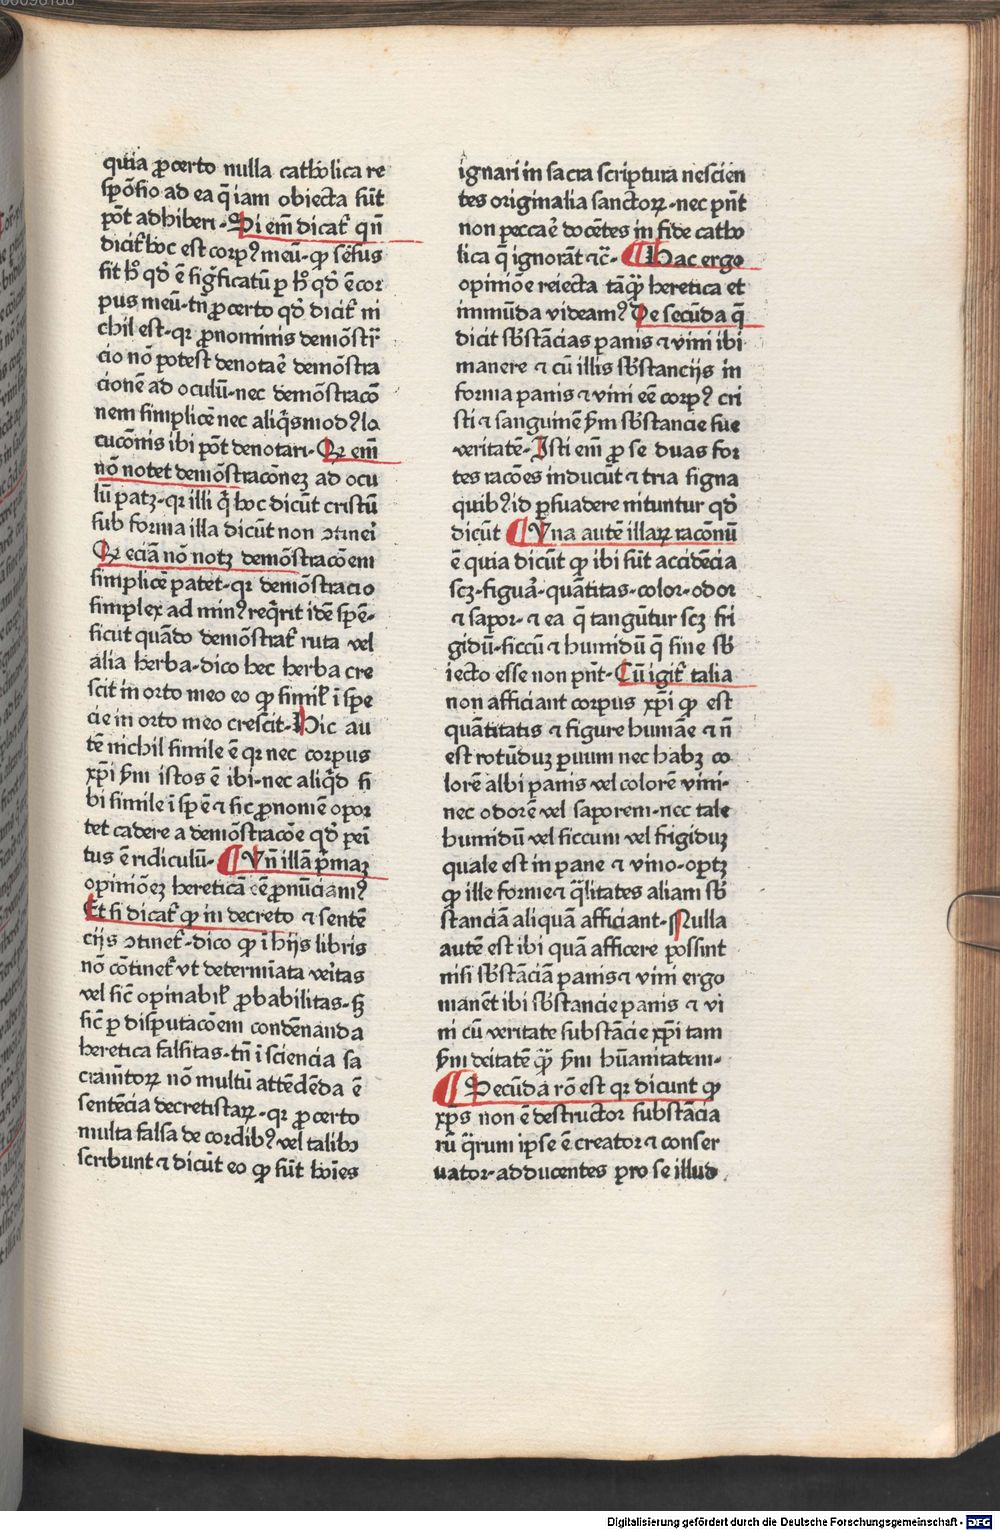 quia ꝓcerto nulla catholica re
spōsio ad ea q̄ iam obiecta sūt
pōt adhiberi · Si em̄ dicat᷑ qn̄
dicit᷑ hoc est corpꝰ meū · ꝙ sēsus
sit hͦ qd̓ ē sig̓ficatū p hͦ qd̓ ē cor
pus meū · tn̄ ꝓcerto qd̓ dicit᷑ ni
chil est · qr ꝓnominis demōstr̄
cio nō potest denotaē demōstra
cionē ad oculū · nec demōstracō
nem simplicē nec aliq̄s modꝰ lo
cucōnis ibi pōt denotari · Qr em̄
nō notet demōstracōnez ad ocu
lū patꝫ · qr illi q̄ hoc dicūt cristū
sub forma illa dicūt non ↄtineī
Qr eciā nō notꝫ demōstracōem
simplicē patet · qr demōstracio
simplex ad minꝰ reqͥrit idē spē ·
sicut quādo demōstrat᷑ ruta vel
alia herba · dico hec herba cre
scit in orto meo eo ꝙ simil̓ ī spe
cie in orto meo crescit · Hic au
tē nichil simile ē qr nec corpus
xp̄i ẜm istos ē ibi · nec aliqͥd si
bi simile ī spē ⁊ sic ꝓnomē opor
tet cadere a demōstracōe qd̓ peī
tus ē ridiculū · ¶ Vn̄ illā p̄maꝫ
opiniōeꝫ hereticā eē ꝓnūciamꝰ
Et si dicat᷑ ꝙ in decreto ⁊ sentē
cijs ↄtinet᷑ · dico ꝙ ī hijs libris
nō cōtinet᷑ vt determīata veītas
vel sic̄ opinabil̓ ꝓbabilitas · sꝫ
sic̄ p disputacōem condēnanda
heretica falsitas · tn̄ ī sciencia sa
cram̄torꝝ nō multū attēdēda ē
sentēcia decretistarꝝ · qr ꝓcerto
multa falsa de cordibꝰ vel talibꝰ
scribunt ⁊ dicūt eo ꝙ sūt hoīes
ignari in sacra scriptura nescien
tes originalia sanctorꝝ · nec pn̄t
non peccaē docētes in fide catho
lica q̄ ignorāt ⁊c̄ · ¶ Hac ergo
opiniōe reiecta tāꝙ̄ heretica et
immūda videamꝰ De secūda q̄
dicit sb̄stācias panis ⁊ vini ibi
manere ⁊ cū illis sb̄stancijs in
forma panis ⁊ vini eē corpꝰ cri
sti ⁊ sanguinem ẜm sb̄stancie sue
veritatē · Isti em̄ ꝓ se duas for
tes racōes inducūt ⁊ tria signa
quibꝰ id p̱suadere nituntur qd̓
dicūt ¶ Vna autē illarꝝ racōnū
ē quia dicūt ꝙ ibi sūt accidēcia
scꝫ · figuā · quātitas · color · odor
⁊ sapor · ⁊ ea q̄ tangūtur scꝫ fri
gidū · siccū ⁊ humidū q̄ sine sb̄
iecto esse non pn̄t · Cū igit᷑ talia
non afficiant corpus xp̄i ꝙ est
quātitatis ⁊ figure humāe ⁊ n̄
est rotūduꝫ paruum nec habꝫ co
lorē albi panis vel colorē vini ·
nec odorē vel saporem · nec tale
humidū vel siccum vel frigiduꝫ
quale est in pane ⁊ vino · optꝫ
ꝙ ille forme ⁊ q̄litates aliam sb̄
stanciā aliquā afficiant · Nulla
autē est ibi quā afficere possint
nisi sb̄stāciā panis ⁊ vini ergo
manēt ibi sb̄stancie panis ⁊ vi
ni cū veritate substācie xp̄i tam
ẜm deitatē ꝙ̄ ẜm hūanitatem ·
¶ Secūda rō est qr dicunt ꝙ
xp̄s non ē destructor substācia
rū q̄rum ipse ē creator ⁊ conser
uator · adducentes pro se illud
Digitalisierung gefördert durch die Deutsche Forschungsgemeinschaft - DFG